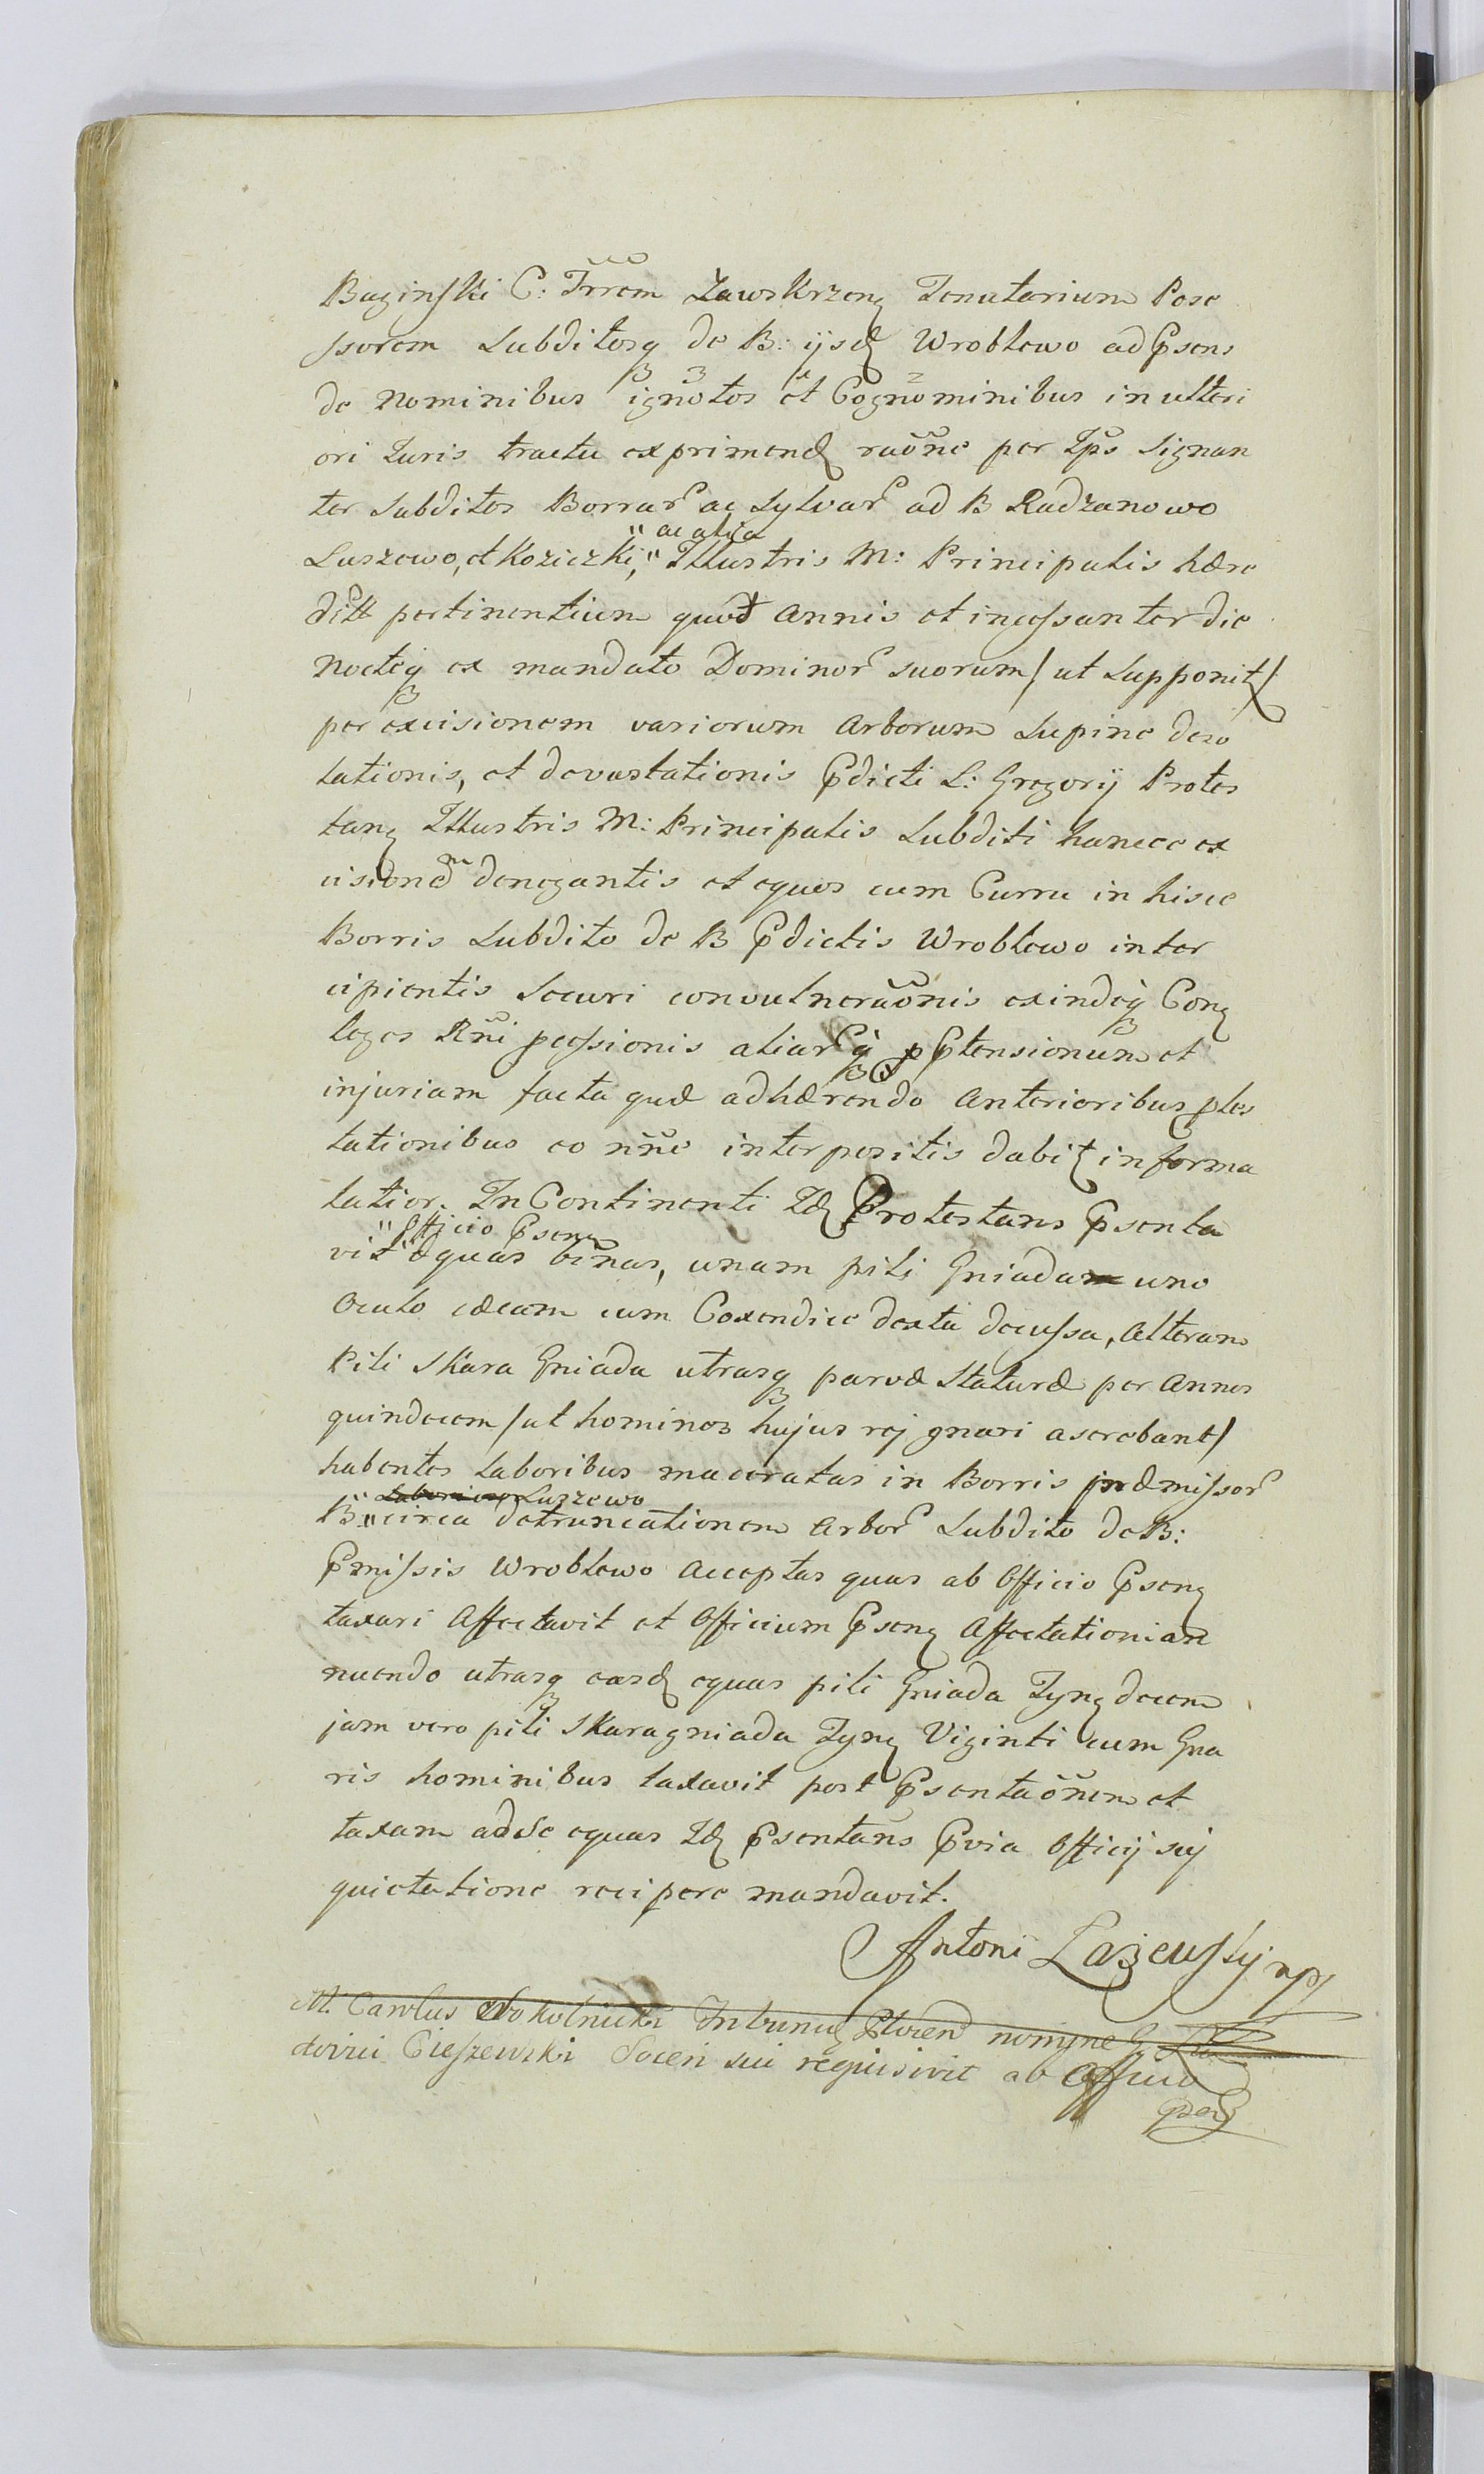 Baginski C: Trrem Zawskrzen Tenutarium Pose
ssorem Subditosq de B: ijsd Wroblewo ad Psens
de Nominibus ignotos et Cognominibus in ulteri
ori Iuris tractu exprimend raone per Ips Signan
ter Subditos Borrar ac Sylvar ad B Radzanowo
Luszewo, et Koziczki, "ac alia" Illustris M: Principalis hære
ditt pertinentium quot Annis et incessanter die
Nocteq ex mandato Dominor suorum / ut Supponit /
per excisionem variorum Arborum Supine deso
lationis, et devastationis Pdicti L: Gregorij Protes
tan Illustris M: Principalis Subditi hancce ex
cisionem denegantis et equos cum Curru in hisce
Borris Subdito de B Pdictis Wroblewo inter
cipientis Securi convulneraonis exindeq Con
leges Rni pcessionis aliarq Ptensionum et
injuriam facta quæ adhærendo Anterioribus ptes
tationibus eo nne interpositis dabit in forma
latior. In Continenti Id Protestans Psenta
vit "Officio Psen" equas binas, unam pili Gniada uno
Oculo cæcam cum Coxendice dexta decussa, Alteram
Pili Skara Gniada utrasq parvæ Staturæ per Annos
quindecem / ut homines hujus rej gnari aserebant /
habentes laboribus maceratas in Borris præmissor
B: "Luszewo" circa detruncationem Arbor Subdito de B:
Pmissis Wroblewo Acceptas quas ab Officio Psen
taxari Affectavit et Officium Psen Affectationi an
nuendo utrasq easd equas pili Gniada Tyn decem
jam vero pili Skaragniada Tyn Viginti cum Gna
ris hominibus taxavit post Psentaonem et
taxam ad Se equas Id Psentans Pvia Officij sui
quietatione recipere mandavit.
Antoni Lazewskij mp
M. Carolus Sokolnicki Tribunus nomyne
dovici Cieszewski Soceri sui requisivit ab Officio
Psen